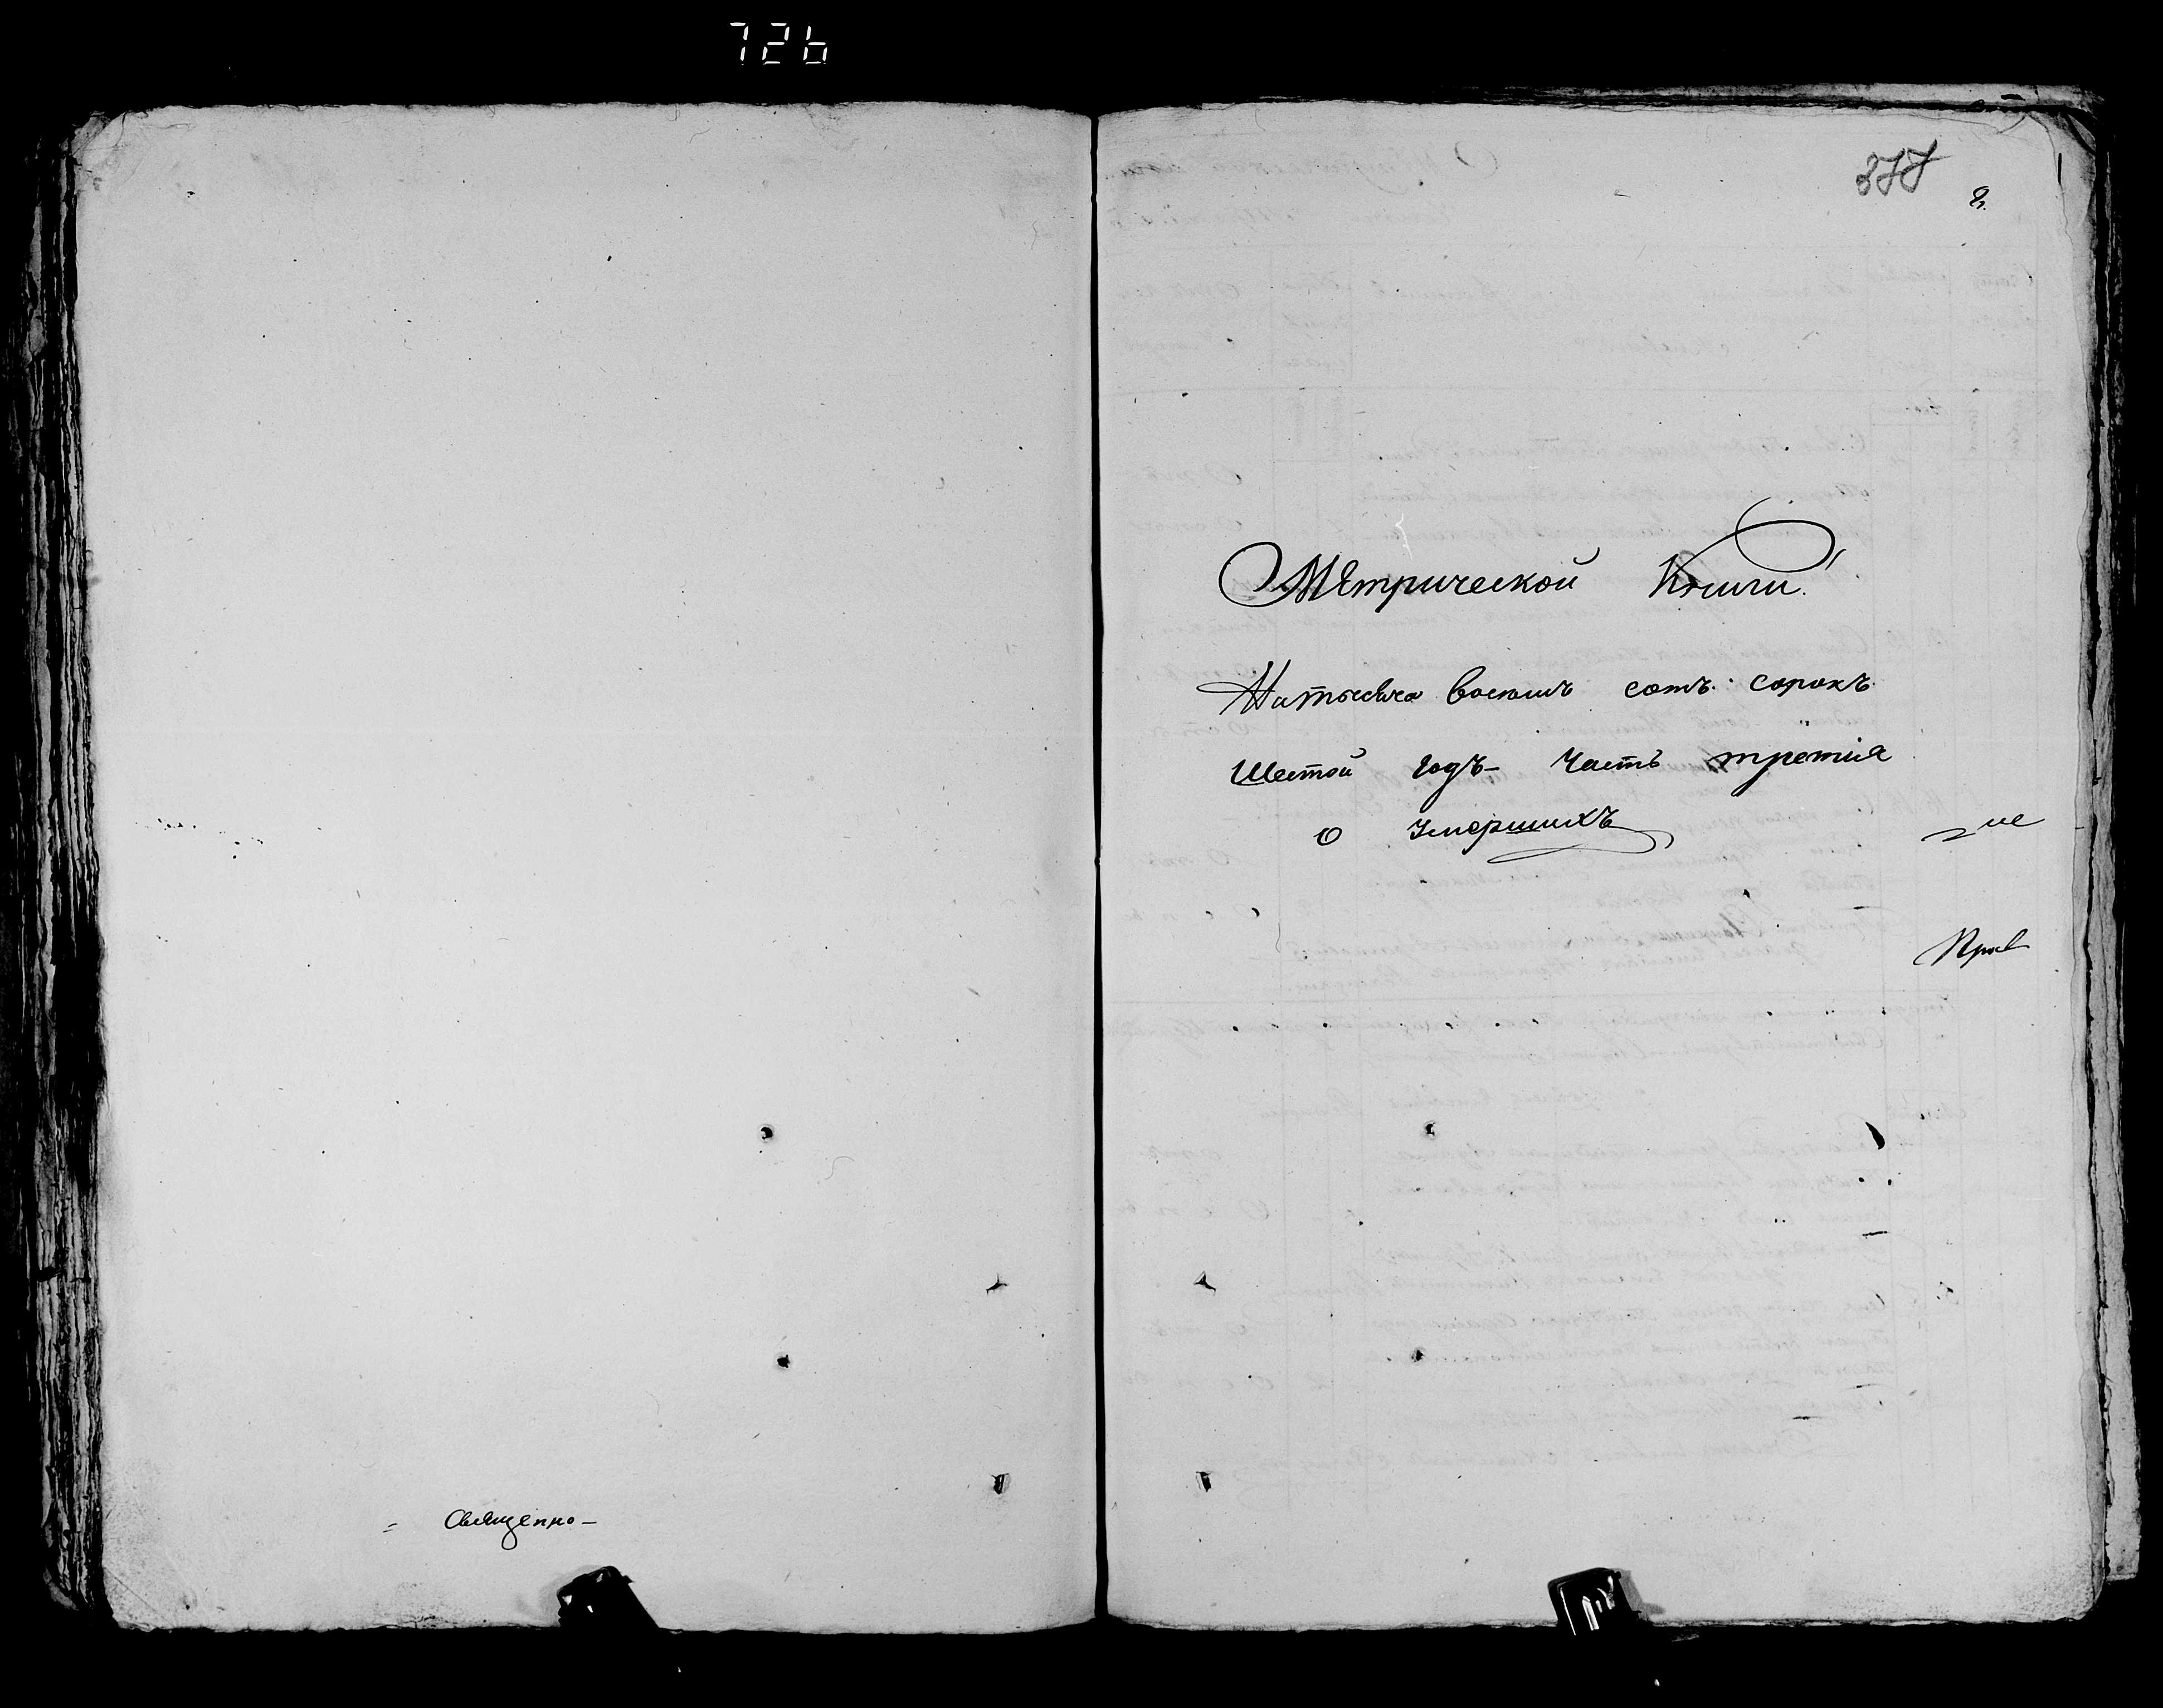 726
377
8.
Метрической Книги
На тысяча восемь сотъ сорокъ
Шестой годъ- Часть третия
о Умершихъ
= Священно-